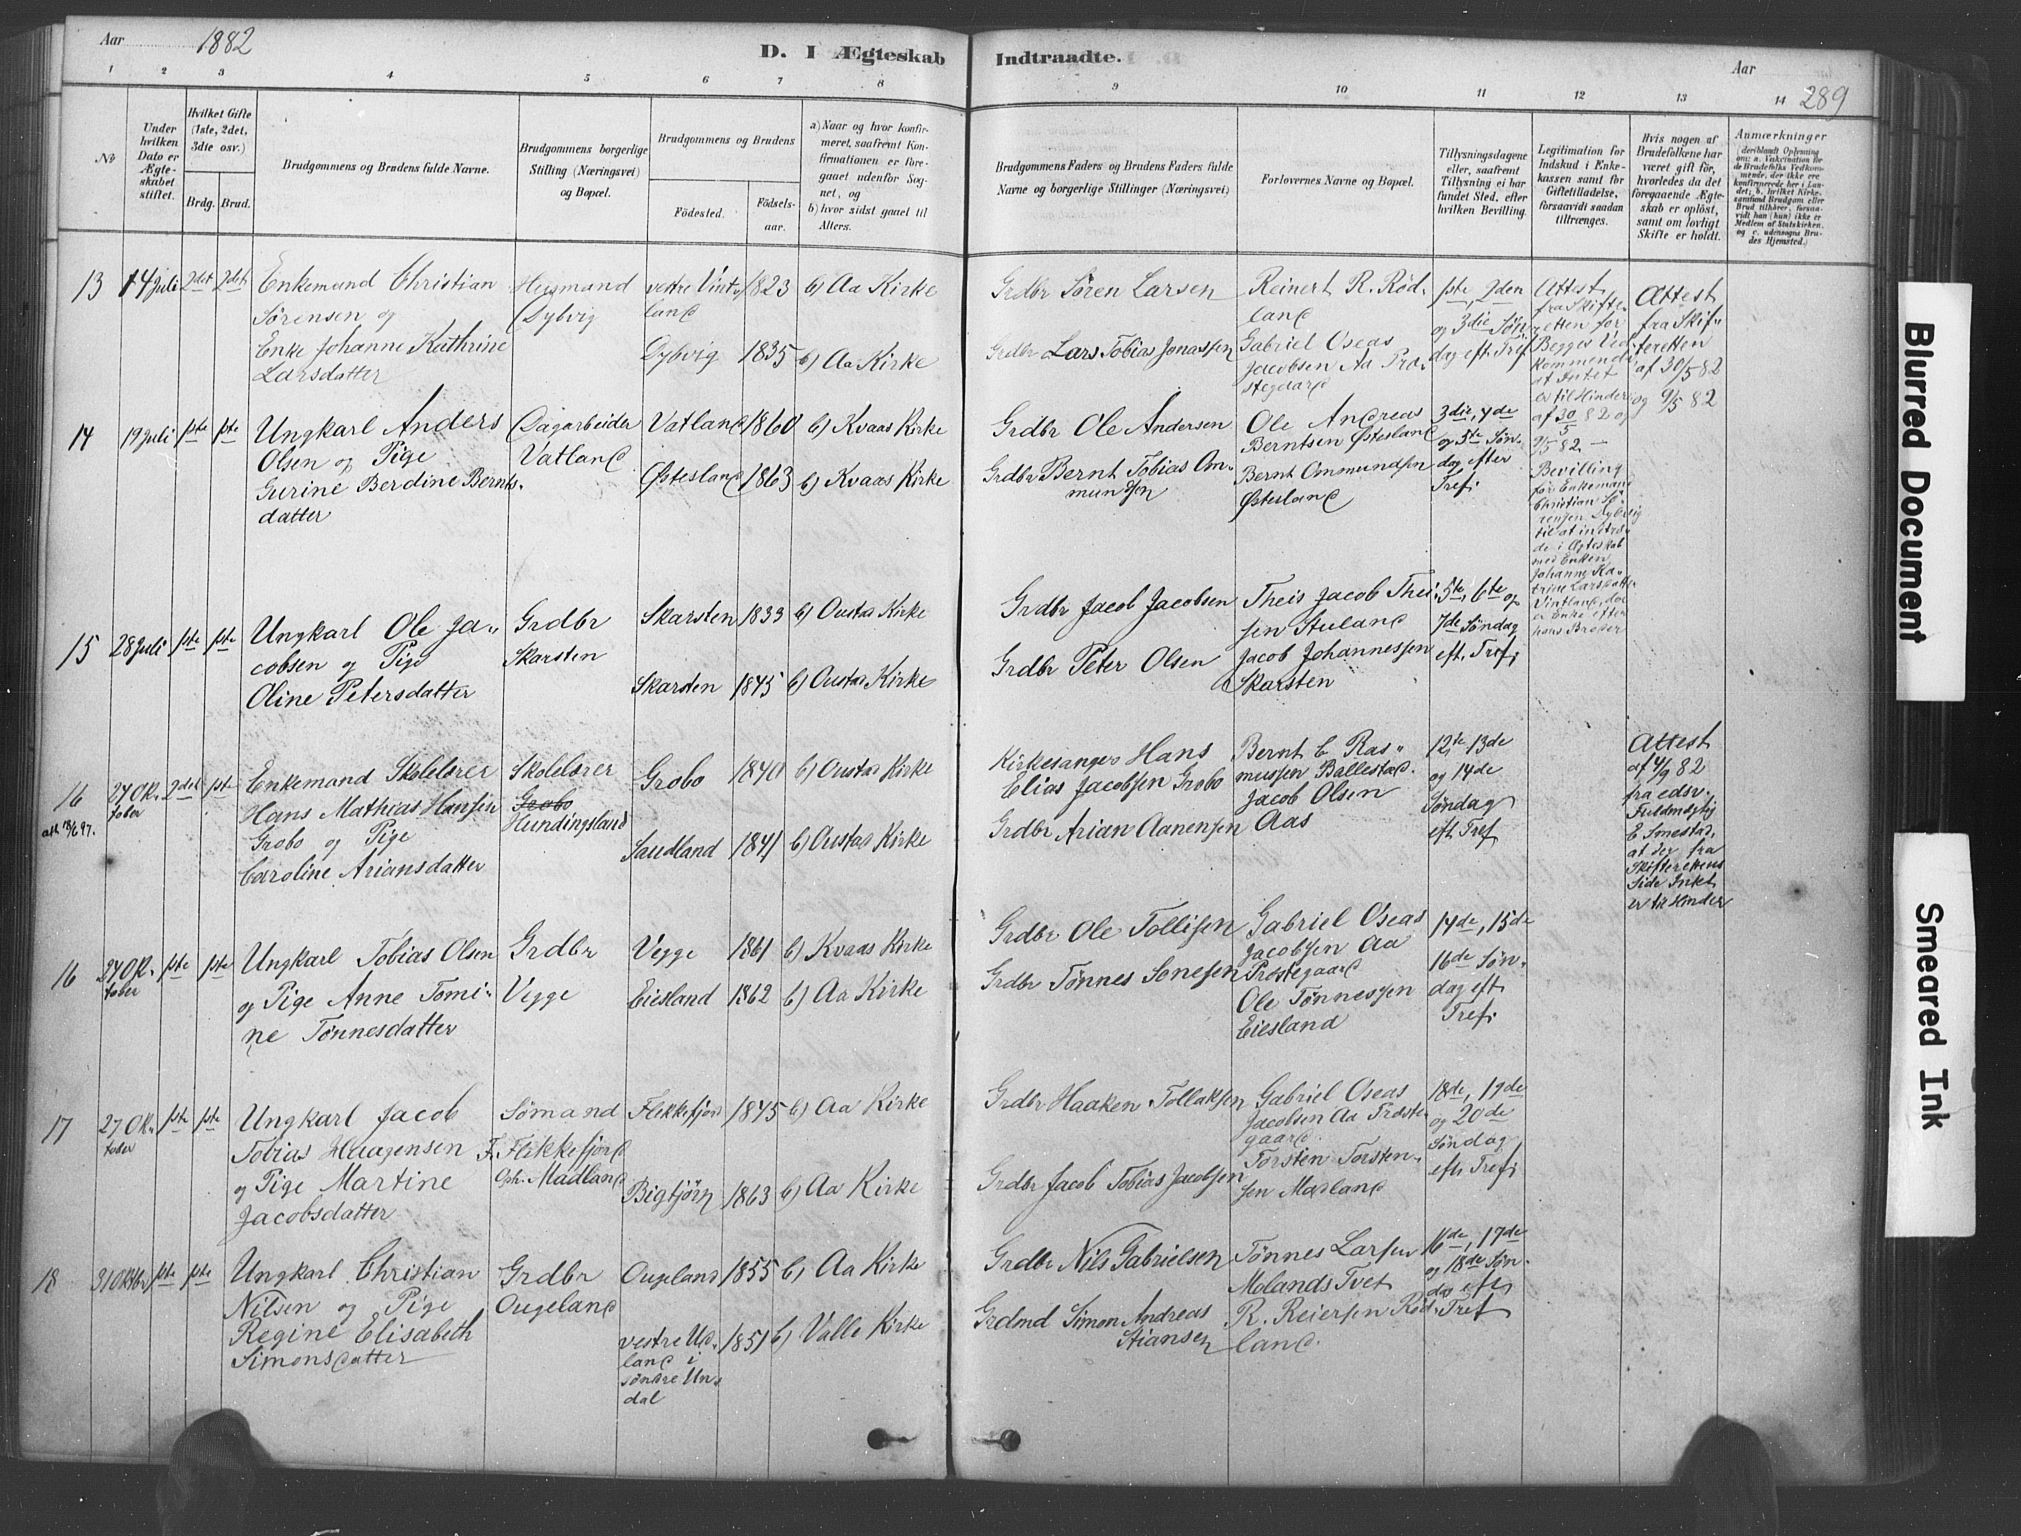 Aar 1882
D. I Ægteskab Indtraadte.
Aar
289
1 2 3 4 5 6 7 8 9 10 11 12 13 14
No
Under hvilken Dato er Ægteskabet stiftet.
Hvilket Gifte (1ste, 2det, 3die osv.)
Brdg. Brud.
Brudgommens og Brudens fulde Navne.
Brudgommens borgerlige Stilling (Næringsvei) og Bopæl.
Brudgommens og Brudens
Fødested. Fødselsaar.
a) Naar og hvor konfirmeret, saafremt Konfirmationen er foregaaet udenfor Sognet, og
b) hvor sidst gaaet til Alters.
Brudgommens Faders og Brudens Faders fulde Navne og borgerlige Stillinger (Næringsvei)
Forlovernes Navne og Bopæl.
Tillysningsdagene eller, saafremt Tillysning ei har fundet Sted, efter hvilken Bevilling.
Legitimation for Indskud i Enkekassen samt for Giftetilladelse, forsaavidt saadan tiltrænges.
Hvis nogen af Brudefolkene har været gift før, hvorledes da det foregaaende Ægteskab er opløst, samt om lovligt Skifte er holdt.
Anmærkninger
13 14 Juli 2det 2det
Enkemand Christian
Sørensen og
Enke Johanne Kathrine
Larsdatter
Heimand
Dybvig
vestre Vintland 1823 b) Aa Kirke
Dybvig 1835 b) Aa Kirke
Grdbr Søren Larsen
Grdbr Lars Tobias Jonassen
Reinert R. Rødland
Gabriel Oseas
Jacobsen Aa Præstegaard
1ste, 2den
og 3die Søndag eft. Tref.
Attest
fra Skifteretten for
Begges Vedkommende
at Intet
er til Hinder
af 30/5 82 og
9/5 82 —
Bevilling
for Enkemand
Christian Sørensen Dybvig
til at indtræde i Ægteskab
med Enken
Johanne Katrine Larsdatter
Vintland, der
er Enke efter
hans Broder
Attest
fra Skifteretten
af 30/5 82
og 9/5 82
14 19 Juli 1ste 1ste
Ungkarl Anders
Olsen og Pige
Gurine Berdine Berntsdatter
Dagarbeider
Vatland
Vatland 1860 b) Kvaas Kirke
Østesland 1863 b) Kvaas Kirke
Grdbr Ole Andersen
Grdbr Bernt Tobias Ommundsen
Ole Andreas
Berntsen Østesland
Bernt Ommundsen
Østesland
3die, 4de
og 5te Søndag efter
Tref.
15 28 Juli 1ste 1ste
Ungkarl Ole Jacobsen og Pige
Oline Petersdatter
Grdbr
Skarsten
Skarsten 1833 b) Oustas Kirke
Skarsten 1845 b) Oustas Kirke
Grdbr Jacob Jacobsen
Grdbr Peter Olsen
Theis Jacob Theisen Stuland
Jacob Johannessen
Skarsten
5te, 6te og
7de Søndag
eft. Tref.
16 27 Oktober 2det 1ste
att 13/6 97.
Enkemand Skolelærer
Hans Mathias Hansen
Grobo og Pige
Caroline Ariansdatter
Skolelærer
Grobo
Hundingsland
Grobo 1840 b) Oustas Kirke
Saudland 1841 b) Oustas Kirke
Kirkesanger Hans
Elias Jacobsen Grobo
Grdbr Arian Aanensen
Bernt C Rasmussen Ballestad.
Jacob Olsen
Aas
12te 13de
og 14de
Søndag
eft Tref
Attest
af 4/9 82
fra edsv.
Fuldmægtig
E Smestad,
at der fra
Skifterettens
Side Intet
er til Hinder
16 27 Oktober 1ste 1ste
Ungkarl Tobias Olsen
og Pige Anne Tomine Tønnesdatter
Grdbr
Vegge
Vegge 1861 b) Kvaas Kirke
Eiesland 1862 b) Aa Kirke
Grdbr Ole Tollisen
Grdbr Tønnes Sonesen
Gabriel Oseas
Jacobsen Aa
Præstegaard
Ole Tønnessen
Eiesland
14de, 15de
16de Søndag eft
Tref.
17 27 Oktober 1ste 1ste
Ungkarl Jacob
Tobias Haagensen
og Pige Martine
Jacobsdatter
Sømand
F. Flikkefjord
Oph. Madland
Flikkefjord 1845 b) Aa Kirke
Bigtjørn 1863 b) Aa Kirke
Grdbr Haaken Tollaksen
Grdbr Jacob Tobias Jacobsen
Gabriel Oseas
Jacobsen Aa Præstegaard.
Torsten Torstensen Madland
18de, 19de
og 20de
Søndag
eft. Tref.
18 31 Oktbr 1ste 1ste
Ungkarl Christian
Nilsen og Pige
Regine Elisabeth
Simonsdatter
Grdbr
Ougeland
Ougeland 1855 b) Aa Kirke
vestre Udland i
søndre Undal 1851 b) Valle Kirke
Grdbr Nils Gabrielsen
Grdmd Simon Andreas
Stiansen
Tønnes Larsen
Molands Tvet
R. Reiersen Rødland.
16de, 17de
og 18de Søndag eft
Tref
Blurred Document
Smeared Ink